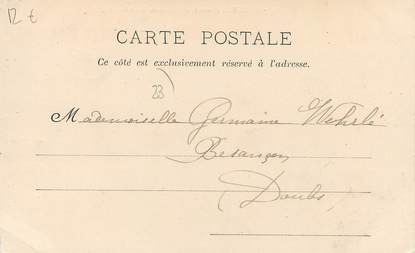 12 €
CARTE POSTALE
Ce côté est exclusivement réservé à l'adresse.
23
Mademoiselle Germaine Wehrlé
Besançon
Doubs